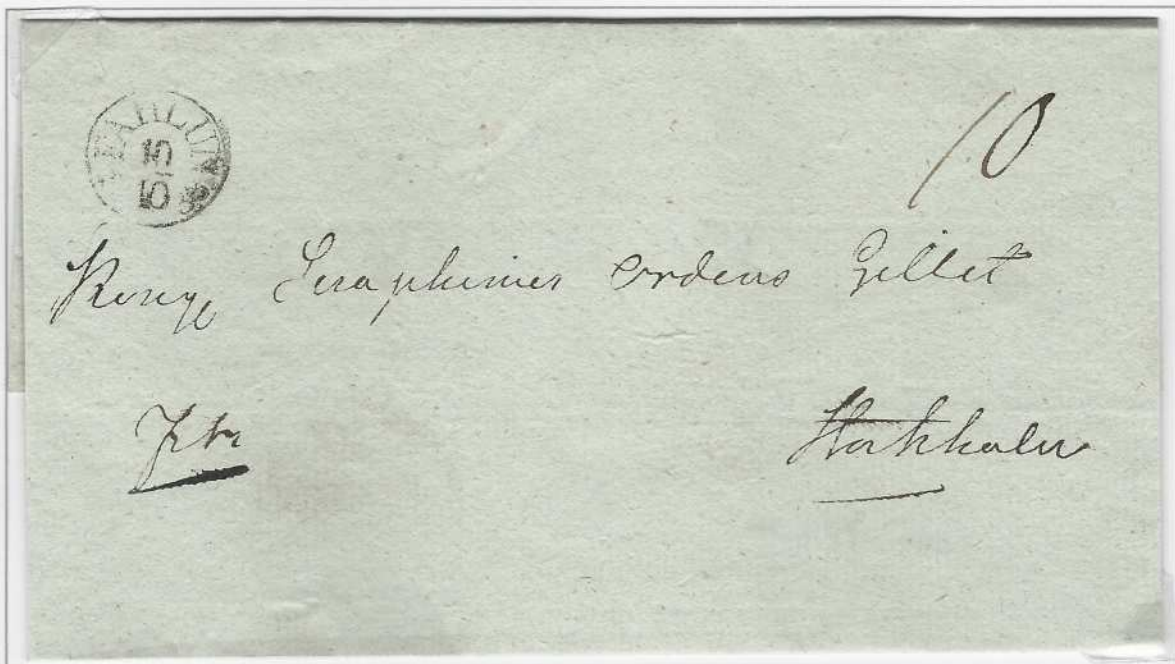 FAHLUN
15
10
10
Kongl Seraphimer Ordens Gillet
Stockholm